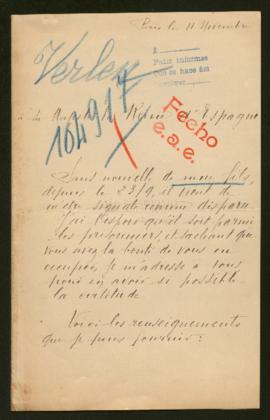 Paris le 11 Novembre
Verley
Pedir informes
que se hace así
104917
à Sa Majesté la Reine d'Espagne
Fecho
e.a.e.
Sans nouvelle de mon fils,
depuis le 23/9, il vient de
m'etre signalé comme disparu
J'ai l'espoir qu'il soit parmi
les prisonniers, et sachant que
vous avez la bonté de vous en
occuper, je m'adresse a vous
pour en avoir si possible
la certitude.
Voici les renseignements
que je puis fournir :